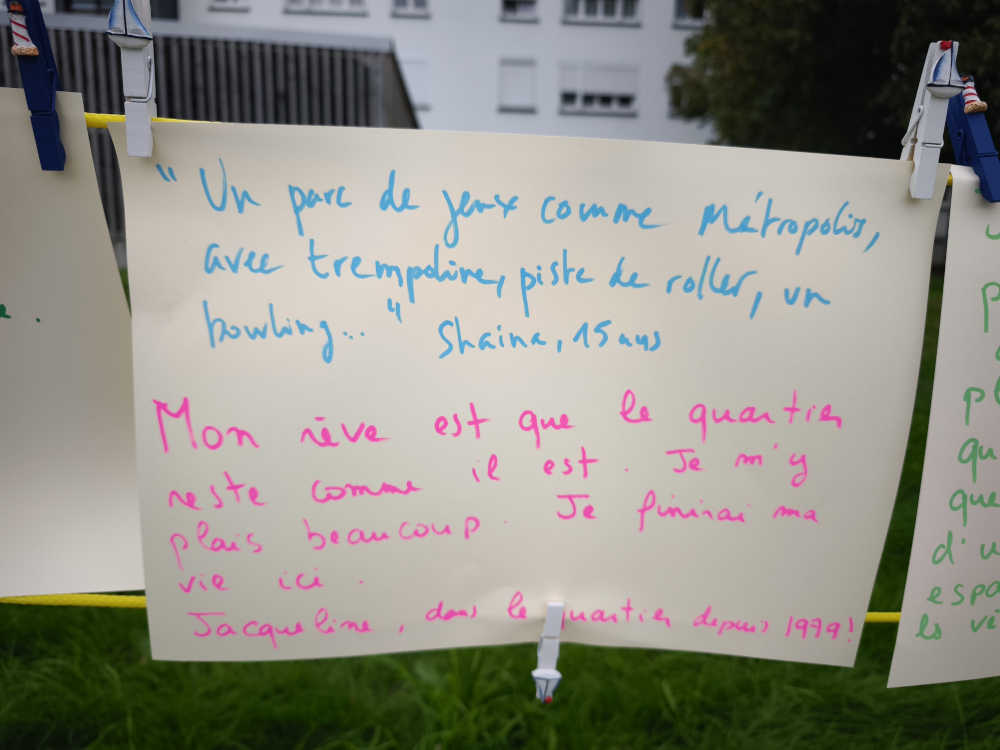 " Un parc de jeux comme Métropolis,
avec trempoline, piste de roller, un
bowling... " Shaina, 15 ans
Mon rêve est que le quartier
reste comme il est. Je m'y
plais beaucoup. Je finirai ma
vie ici.
Jacqueline, dans le quartier depuis 1979!
e.
p
pl
qu
que
d'u
espa
les vé